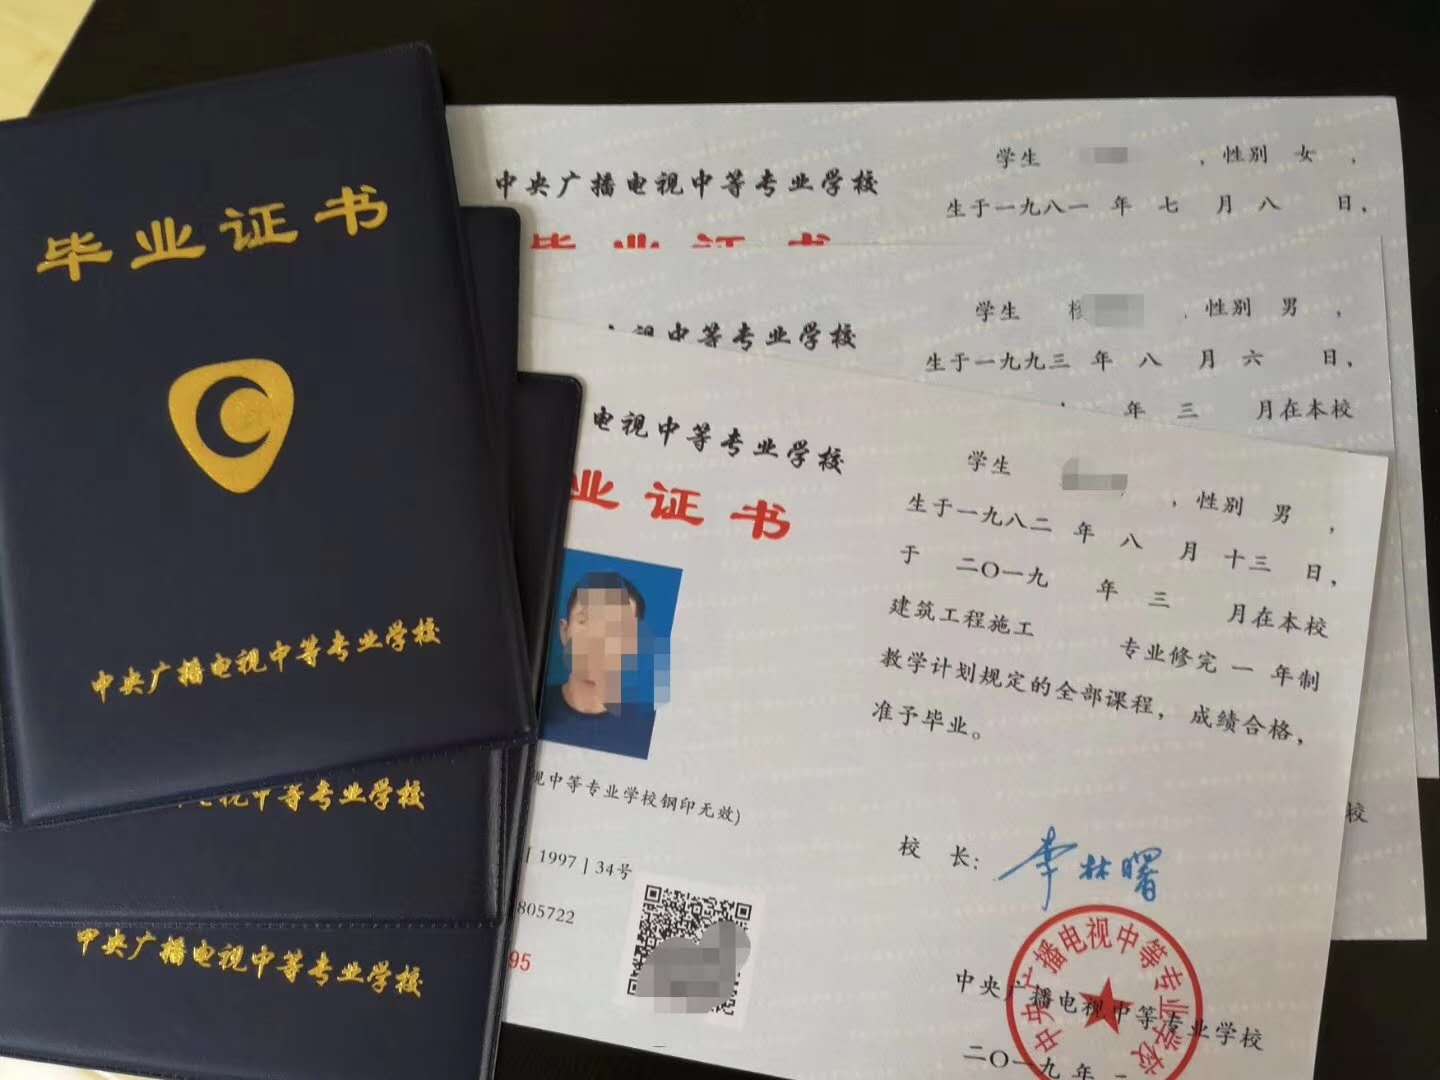 毕业证书
中央广播电视中等专业学校
中等专业学校
中央广播电视中等专业学校
中央广播电视中等专业学校
毕业证书
学生 ,性别 女 ,
生于一九八一 年 七 月 八 日,
视中等专业学校
学生 ,性别 男 ,
生于一九九三 年 八 月 六 日,
年 三 月在本校
校
电视中等专业学校
业证书
视中等专业学校钢印无效)
[ 1997 ] 34号
805722
95
学生 ,性别 男 ,
生于一九八二 年 八 月 十三 日,
于 二〇一九 年 三 月在本校
建筑工程施工 专业修完 一 年制
教学计划规定的全部课程, 成绩合格,
准予毕业。
校 长: 李林曙
中央广播电视中等专业学校
中央广播电视中等专业学校
二〇一九 年